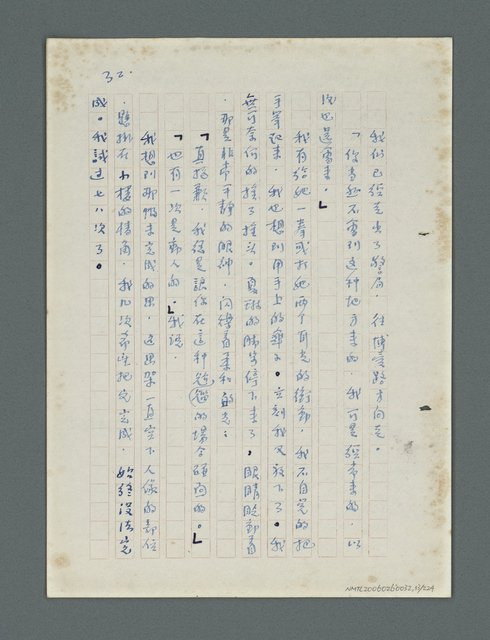 32.
我們已經走出了警局，往博愛路方向走。
「你當然不會到這種地方來的，我可是經常來的，以
後也還會來。」
我有給她一拳或打她兩个耳光的衝動，我不自覺的把
手举起來，我也想到用手上的傘。立刻我又放下了。我
無可奈何的搖了搖头。夏琳的腳步停下來了，眼睛眨動着
，那是非常平靜的眼神，闪爍着柔和的光：
「真抱歉，我總是讓你在這種尴尬的場合碰面的。」
「也有一次是動人的。」我說。
我想到那幅未完成的畫，這畫架一直空下人像的部位
，懸掛在小樓的牆角，我几次希望把它完成，始終沒法完
成。我試过七八次了。
NMTL20060260032,33/224